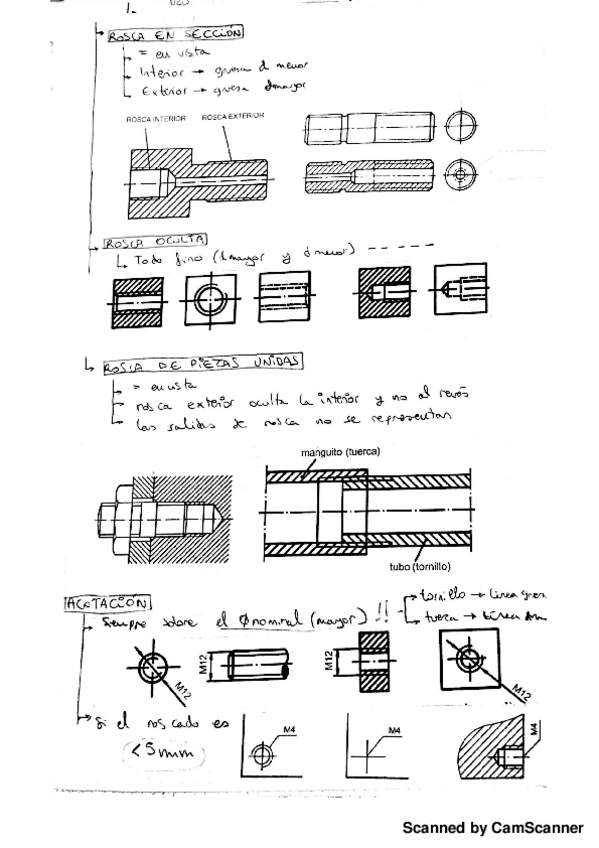 1.
ROSCA EN SECCIÓN
= en vista
Interior → gruesa d menor
Exterior → gruesa d mayor
ROSCA INTERIOR ROSCA EXTERIOR
ROSCA OCULTA
Todo fino (d mayor y d menor) -----
ROSCA DE PIEZAS UNIDAS
= en vista
rosca exterior oculta la interior y no al revés
las salidas de rosca no se representan
manguito (tuerca)
tubo (tornillo)
ACOTACIÓN
Siempre sobre el Ø nominal (mayor) !!
tornillo → línea
tuerca → línea
M12
M12
M12
M12
Si el roscado es
< 5mm
M4
M4
M4
Scanned by CamScanner